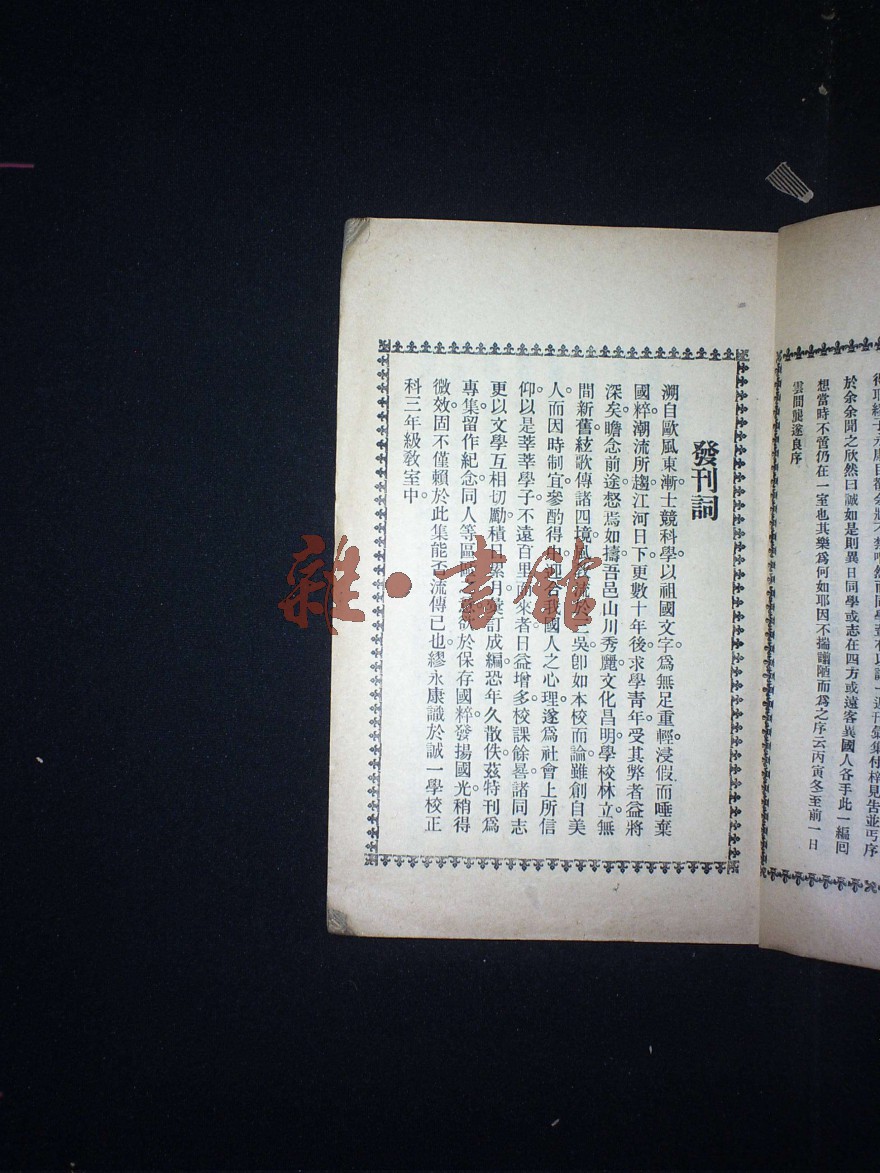 於余余聞之欣然曰誠如是則異日同學或志在四方或遠客異國人各手此一編囘
想當時不啻仍在一室也其樂爲何如耶因不揣譾陋而爲之序云丙寅冬至前一日
雲間龔遂良序
發刊詞
溯自歐風東漸。士競科學。以祖國文字。爲無足重輕。浸假而唾棄
國粹。潮流所趨。江河日下。更數十年後。求學靑年。受其弊者益將
深矣。瞻念前途。惄焉如擣。吾邑山川秀麗。文化昌明。學校林立。無
間新舊。絃歌傳諸四境。風 流於三吳。卽如本校而論。雖創自美
人。而因時制宜。參酌得中。迎合我國人之心理。遂爲社會上所信
仰。以是莘莘學子。不遠百里而來者。日益增多。校課餘晷。諸同志
更以文學互相切勵。積日累月。彙訂成編。恐年久散佚。茲特刊爲
專集。留作紀念。同人等區區之意。欲於保存國粹。發揚國光。稍得
微效。固不僅賴於此集能否流傳已也。繆永康識於誠一學校正
科三年級敎室中。
雜·書館